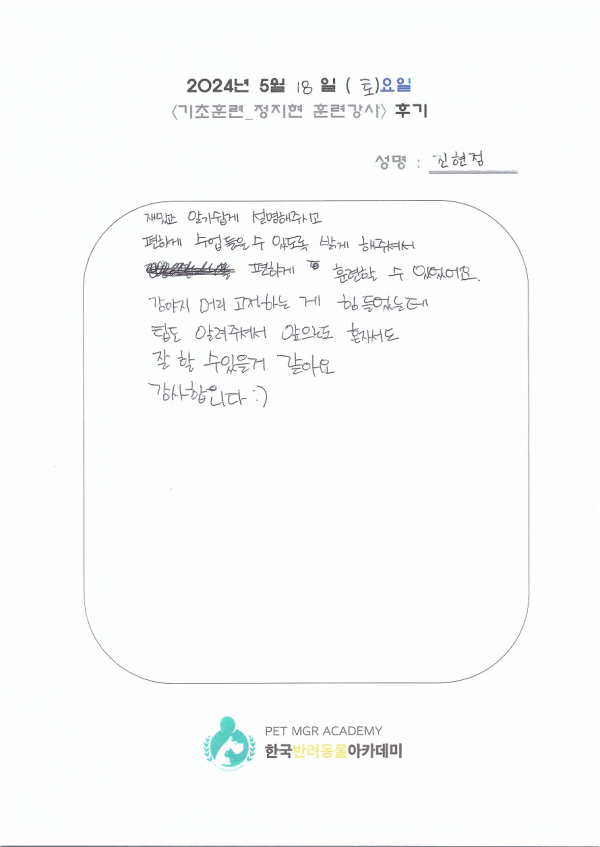 2024년 5월 18 일 ( 토)요일
<기초훈련_정지현 훈련강사> 후기
성명 : 신현정
재밌고 알기쉽게 설명해주시고
편하게 수업들을수 있도록 밝게 해주셔서
편하게 훈련할 수 있었어요.
강아지 머리 고정하는 게 힘들었는데
팁도 알려주셔서 앞으로도 혼자서도
잘 할 수있을거 같아요
감사합니다 :)
PET MGR ACADEMY
한국반려동물아카데미